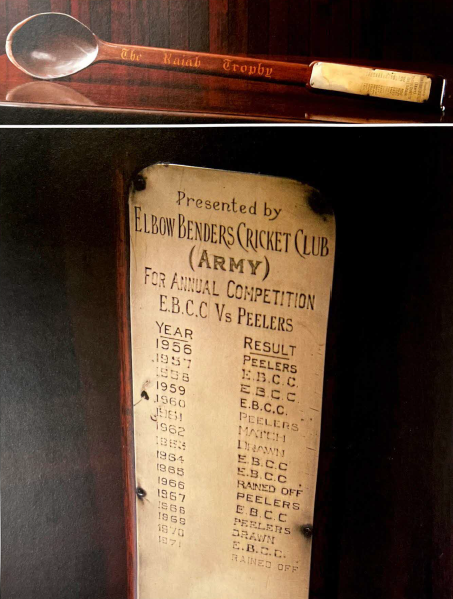 The Rajah Trophy
Presented by
ELBOW BENDERS CRICKET CLUB
(ARMY)
FOR ANNUAL COMPETITION
E.B.C.C Vs PEELERS
YEAR RESULT
1956 PEELERS
1957 E.B.C.C.
1958 E.B.C.C.
1959 E.B.C.C.
1960 PEELERS
1961 MATCH
1962 DRAWN
1963 E.B.C.C
1964 E.B.C.C
1965 RAINED OFF
1966 PEELERS
1967 E.B.C.C
1968 PEELERS
1969 DRAWN
1970 E.B.C.C.
1971 RAINED OFF